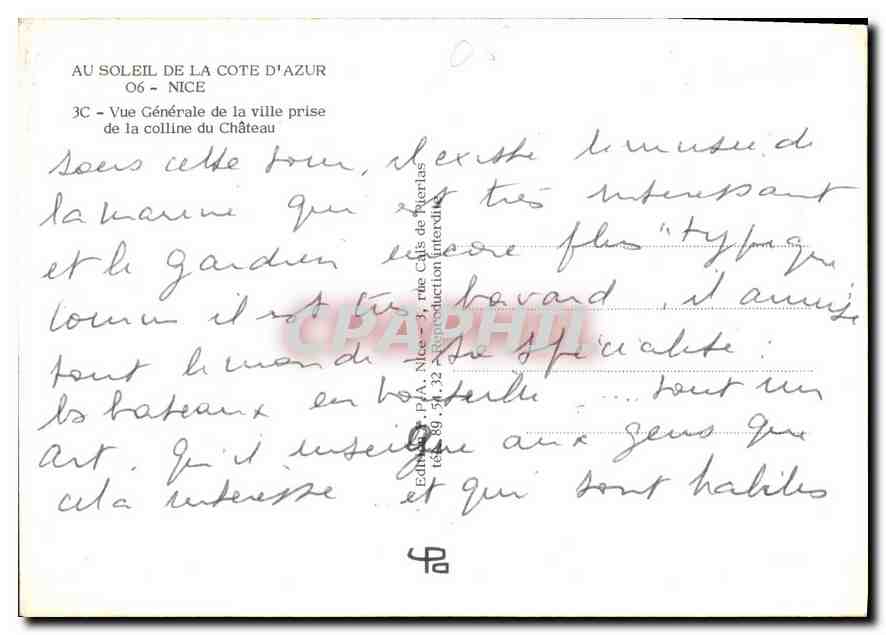 AU SOLEIL DE LA COTE D'AZUR
06 - NICE
3C - Vue Générale de la ville prise
de la colline du Château
sous cette tour, il existe le musée de
la marine qui est très interessant
et le gardien encore plus "typique
comme il est très bavard, il amuse
tout le monde sa spécialité :
les bateaux en bouteille .... tout un
Art, qu'il enseigne aux gens que
cela intéresse et qui sont habiles
Edition P.P.A. Nice - 3, rue Caïs de Pierlas
tél. 89.54.32 - Reproduction interdite
CPAPHIL